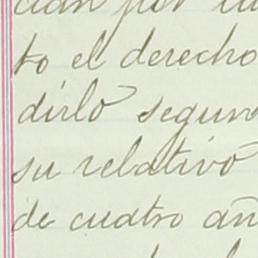 cian por la
to el derecho
dirlo segun
su relativo
de cuatro añ